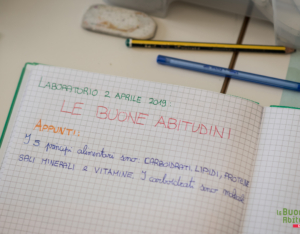 LABORATORIO 2 APRILE 2019
LE BUONE ABITUDINI
APPUNTI:
I 5 principi alimentari sono CARBOIDRATI, LIPIDI, PROTEINE
SALI MINERALI E VITAMINE. I carboidrati sono
le Buone
Abit